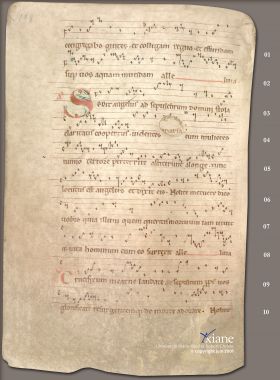 congregabo gentes et colligam regna et effundam
super vos aquam mundam alle luia
Sedit angelus ad sepulchrum domini stola
claritatis coopertus videntes eum mulieres
nimio terrore perterrite astiterunt a longe tunc
locutus est angelus et dixit eis Nolite metuere dico
vobis quia illum quem queritis mortuum iam vivit
et vita hominum cum eo surrexit alle luia
Crucifixum in carne laudate et sepultum propter vos
glorificate resurgentemque de morte adorate Nolite
01
02
03
04
05
06
07
08
09
10
Xiane
© Copyright Juin 2009